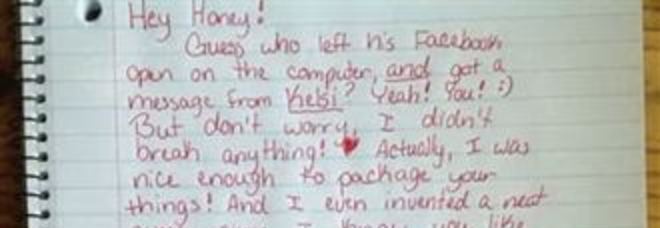 Hey Honey!
Guess who left his Facebook
open on the computer, and got a
message from Kelsi? Yeah! You! :)
But don't worry, I didn't
break anything! ♥ Actually, I was
nice enough to package your
things! And I even invented a neat